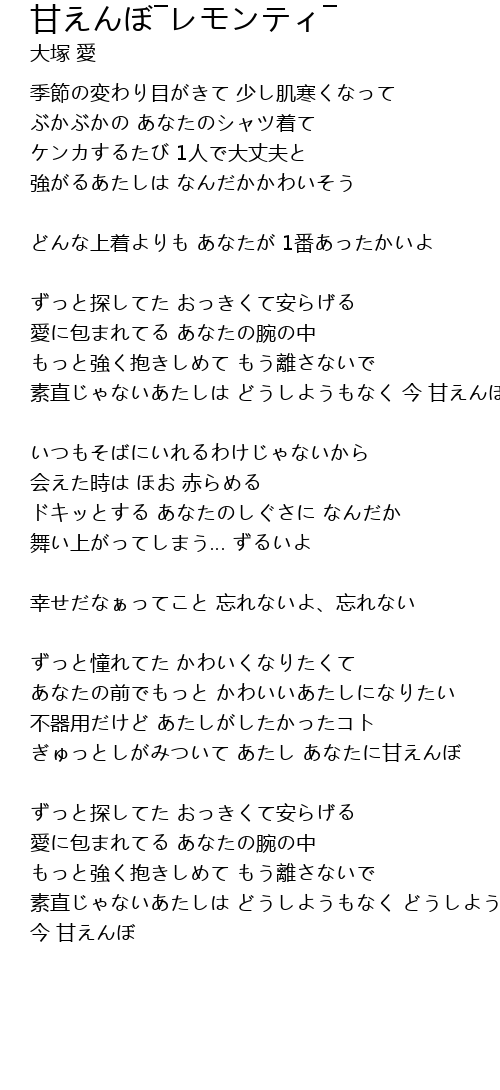 甘えんぼ‾レモンティ‾
大塚 愛
季節の変わり目がきて 少し肌寒くなって
ぶかぶかの あなたのシャツ着て
ケンカするたび 1人で大丈夫と
強がるあたしは なんだかかわいそう
どんな上着よりも あなたが 1番あったかいよ
ずっと探してた おっきくて安らげる
愛に包まれてる あなたの腕の中
もっと強く抱きしめて もう離さないで
素直じゃないあたしは どうしようもなく 今 甘えんぼ
いつもそばにいれるわけじゃないから
会えた時は ほお 赤らめる
ドキッとする あなたのしぐさに なんだか
舞い上がってしまう... ずるいよ
幸せだなぁってこと 忘れないよ、忘れない
ずっと憧れてた かわいくなりたくて
あなたの前でもっと かわいいあたしになりたい
不器用だけど あたしがしたかったコト
ぎゅっとしがみついて あたし あなたに甘えんぼ
ずっと探してた おっきくて安らげる
愛に包まれてる あなたの腕の中
もっと強く抱きしめて もう離さないで
素直じゃないあたしは どうしようもなく どうしよう
今 甘えんぼ